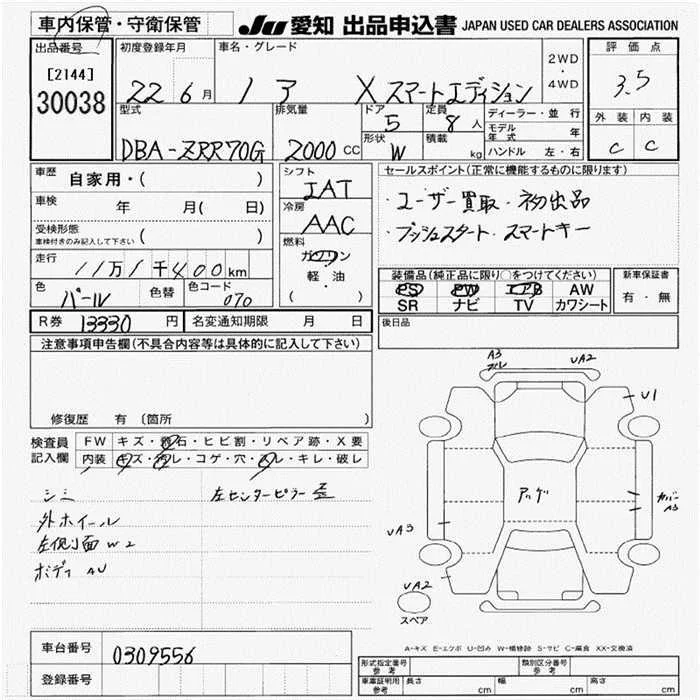 車内保管・守衛保管
JU 愛知 出品申込書 JAPAN USED CAR DEALERS ASSOCIATION
出品番号
[2144]
30038
初度登録年月
22 6月
車名・グレード
X スマートエディション
2WD
・
4WD
評価点
3.5
外装 内装
C C
型式
DBA-ZRR70G
排気量
2000 CC
ドア
5
定員
8人
形状
W
積載
kg
ディーラー・並行
モデル年式 年
ハンドル 左・右
車歴 自家用・( )
車検 年 月( 日)
受検形態
車検付きのみ記入して下さい ( )
走行 11万1千400km
色 パール
色替
色コード 070
シフト
IAT
冷房
AAC
燃料
ガソリン
軽・油
( )
セールスポイント(正常に機能するものに限ります)
・ユーザー買取・初出品
・プッシュスタート・スマートキー
装備品(純正品に限り○をつけてください)
PS PW エアB AW
SR ナビ TV カワシート
新車保証書
有・無
R券 13330 円
名変通知期限 月 日
後日品
注意事項申告欄(不具合内容等は具体的に記入して下さい)
修復歴 有 〔箇所 〕
検査員
記入欄
FW キズ・飛石・ヒビ割・リペア跡・X要
内装 キズ・汚レ・コゲ・穴・スレ・キレ・破レ
シミ
外ホイール
左側面 W2
ボディ AU
左センターピラー
A3
UA2
U1
アッゲ
カバー
A3
UA3
UA2
スペア
A-キズ E-エクボ U-凹み W-補修跡 S-サビ C-腐食 XX-交換済
車台番号 0309556
登録番号
形式指定番号
参考
類別区分番号
参考
車庫証明用
参考
長さ cm
幅 cm
高さ cm